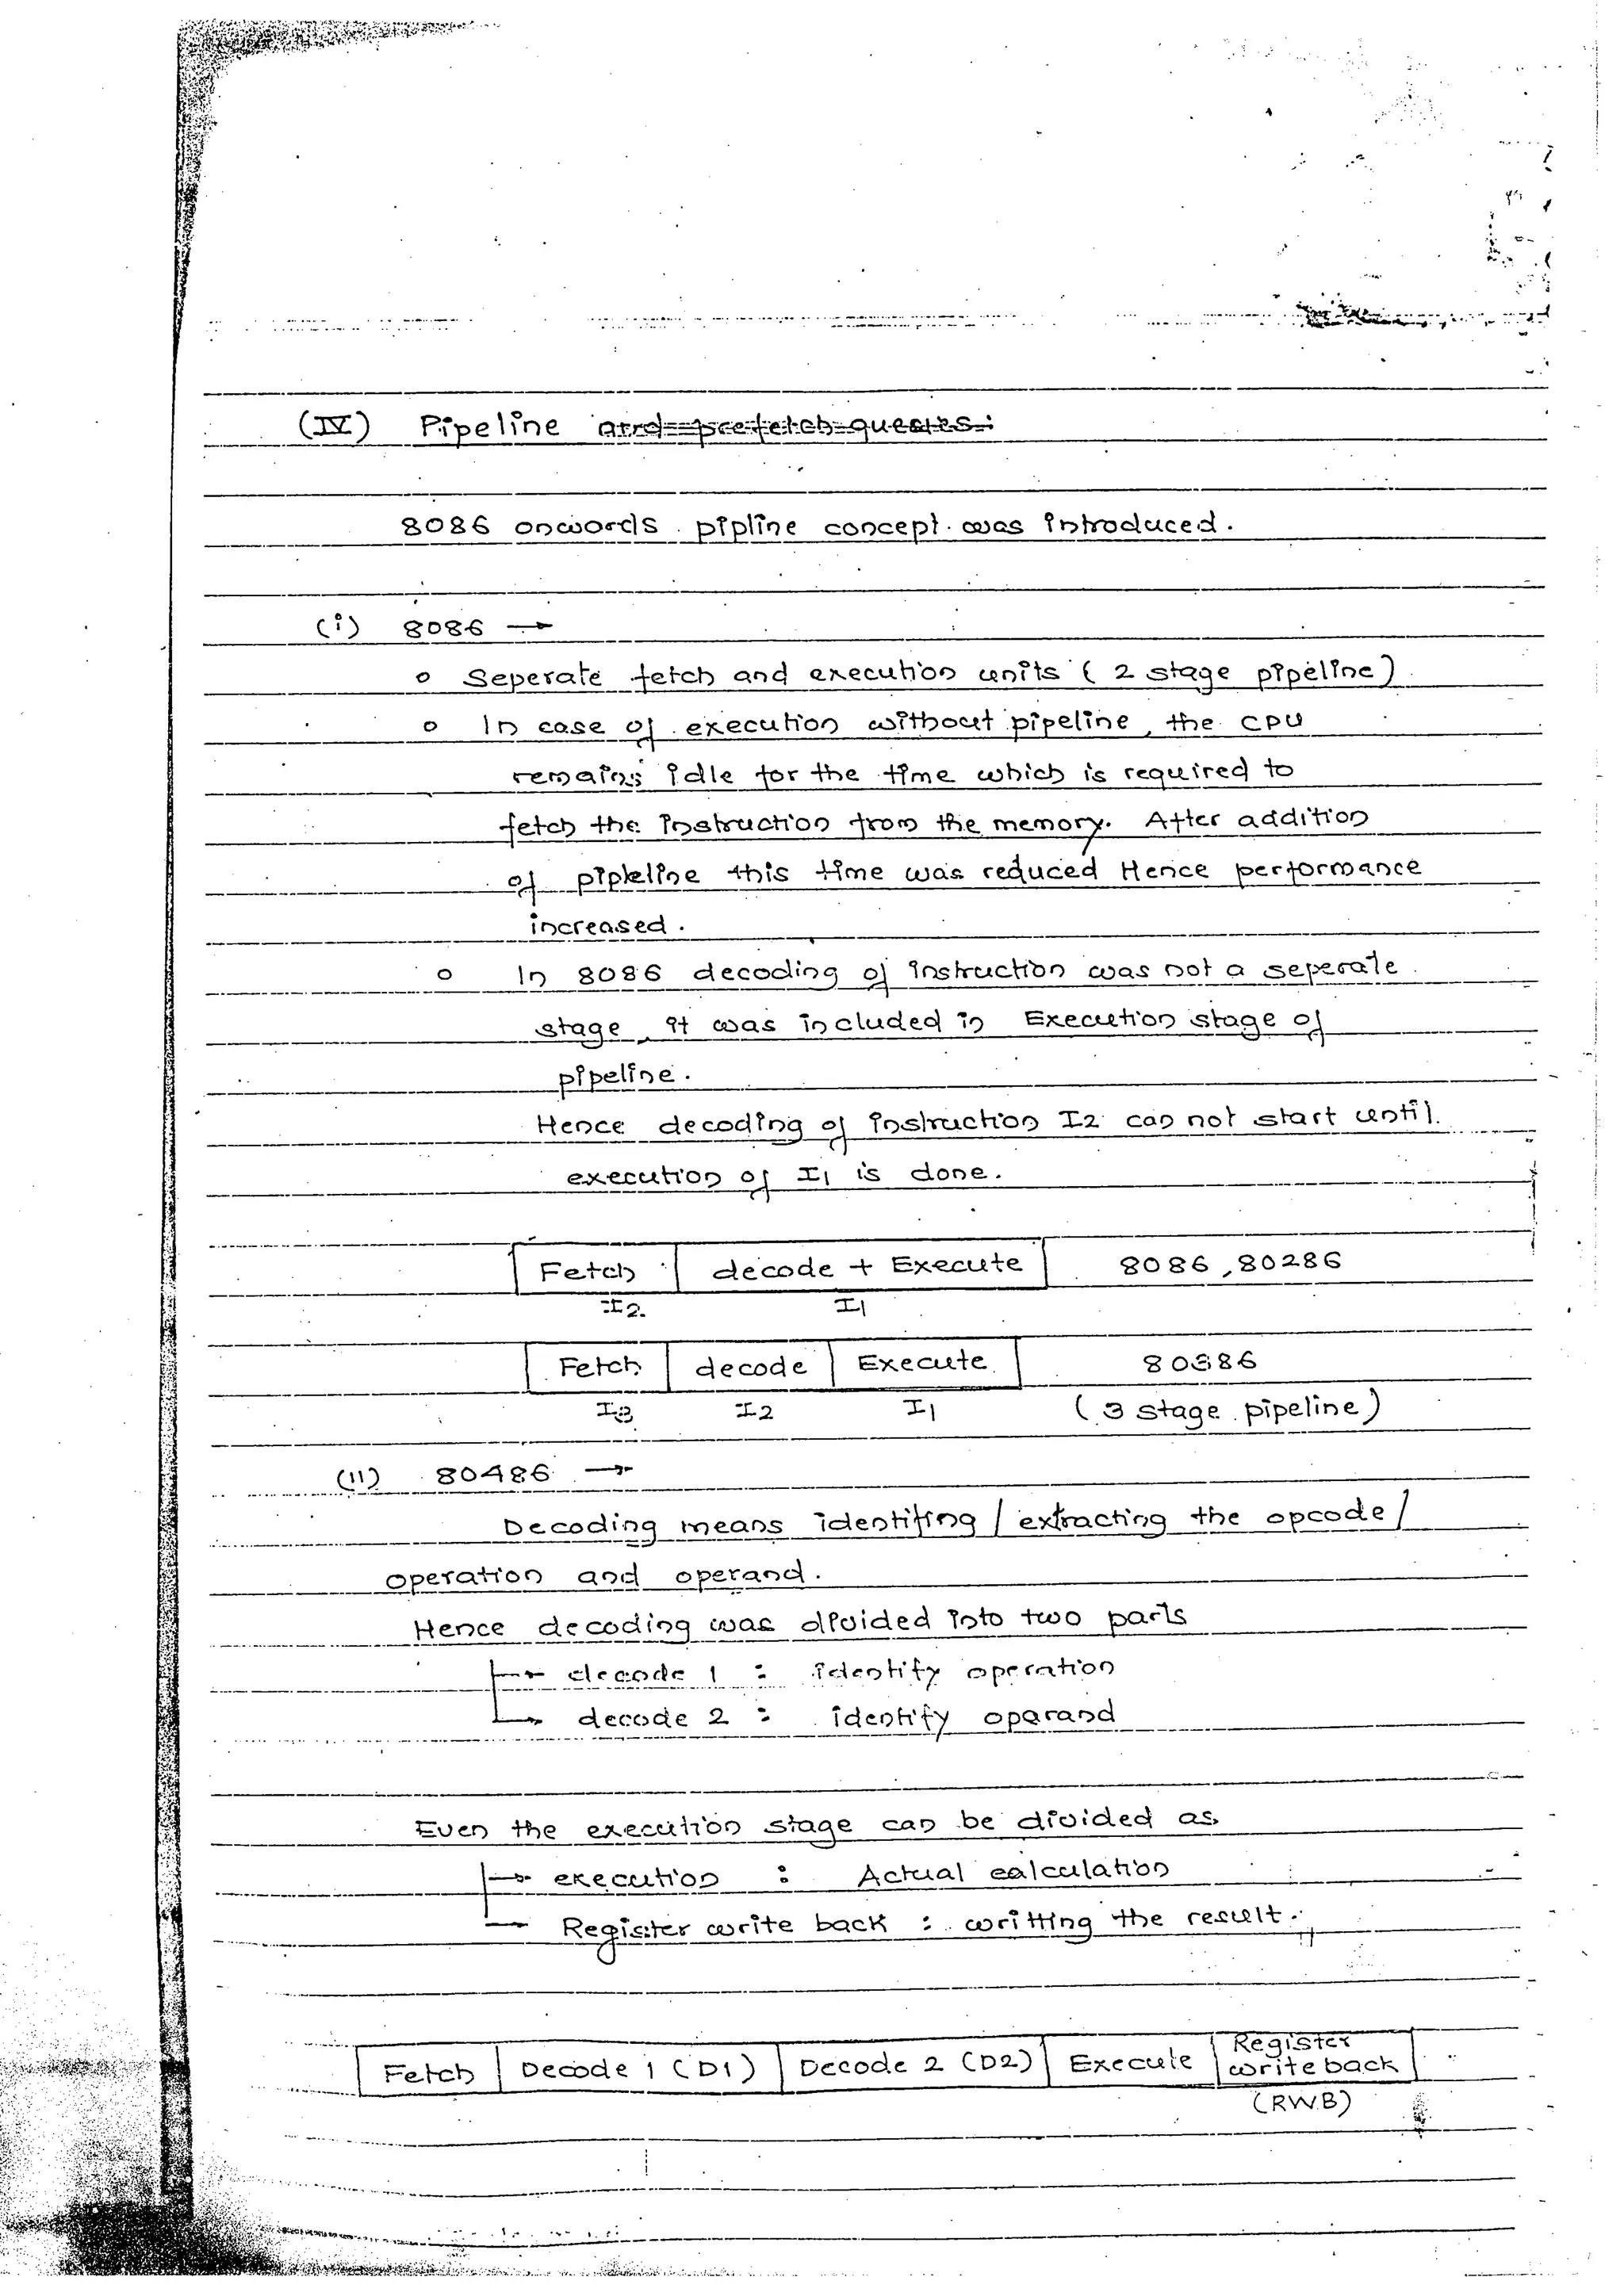 (IV) Pipeline and prefetch queues:
8086 onwords pipline concept was introduced.
(i) 8086 →
o Seperate fetch and execution units ( 2 stage pipeline)
o In case of execution without pipeline, the CPU
remains idle for the time which is required to
fetch the instruction from the memory. After addition
of pipleline this time was reduced Hence performance
increased.
o In 8086 decoding of instruction was not a seperate
stage, it was included in Execution stage of
pipeline.
Hence decoding of instruction I2 can not start until
execution of I1 is done.
Fetch decode + Execute 8086, 80286
I2 I1
Fetch decode Execute 80386
I3 I2 I1 (3 stage pipeline)
(II) 80486 →
Decoding means identifing / extracting the opcode /
operation and operand.
Hence decoding was divided into two parts
→ decode 1 : identify operation
→ decode 2 : identify operand
Even the execution stage can be divided as
→ execution : Actual calculation
— Register write back : writting the result.
Fetch Decode 1 (D1) Decode 2 (D2) Execute Register write back
(RWB)